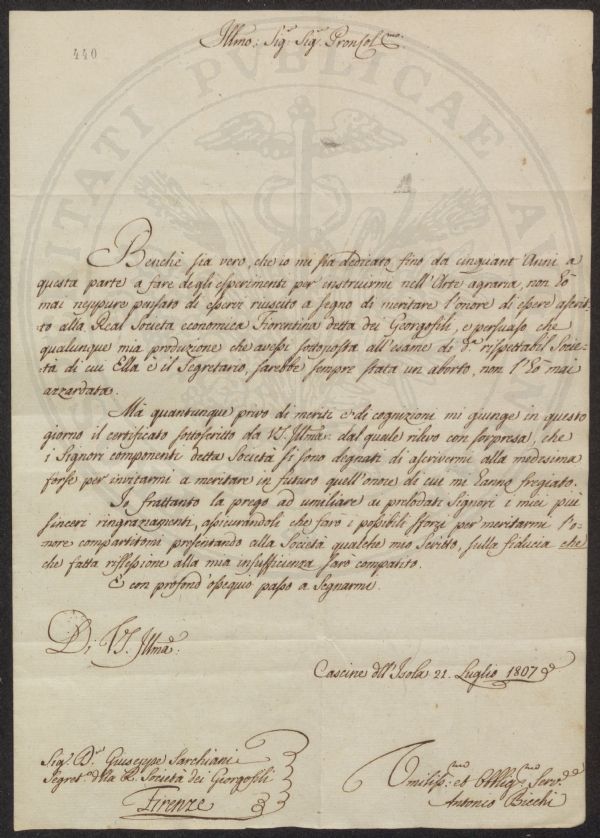 440
Illmo: Sig: Sig: Pron Col:mo
Benchè sia vero, che io mi sia dedicato fino da cinquant'Anni a
questa parte a fare degli esperimenti per instruirmi nell'Arte agraria, non hò
mai neppure pensato di essere riuscito a segno di meritare l'onore di essere ascrit-
to alla Real Società economica Fiorentina detta dei Georgofili, e persuaso che
qualunque mia produzione che avessi sottoposta all'esame di d.a rispettabil Socie-
tà di cui Ella è il Segretario, sarebbe sempre stata un aborto, non l'hò mai
azzardata.
Mà quantunque privo di meriti e di cognizioni mi giunge in questo
giorno il certificato sottoscritto da VS. Illma: dal quale rilevo con sorpresa, che
i Signori componenti detta Società si sono degnati di ascrivermi alla medesima
forse per invitarmi a meritare in futuro quell'onore di cui mi hanno fregiato.
Io frattanto la prego ad umiliare ai prelodati Signori i miei più
sinceri ringraziamenti, assicurandoli che farò i possibili sforzi per meritarmi l'o-
nore compartitomi presentando alla Società qualche mio Scritto, sulla fiducia che
che fatta riflessione alla mia insufficienza sarò compatito.
E con profond'ossequio passo a Segnarmi
Di VS. Illma:
Cascine dell'Isola 21. Luglio 1807
Sig: D.r Giuseppe Sarchiani
Segret.o della R. Società dei Georgofili
Firenze
Umiliss:mo et Obblig:mo Serv.
Antonio Bicchi
PUBLICAE